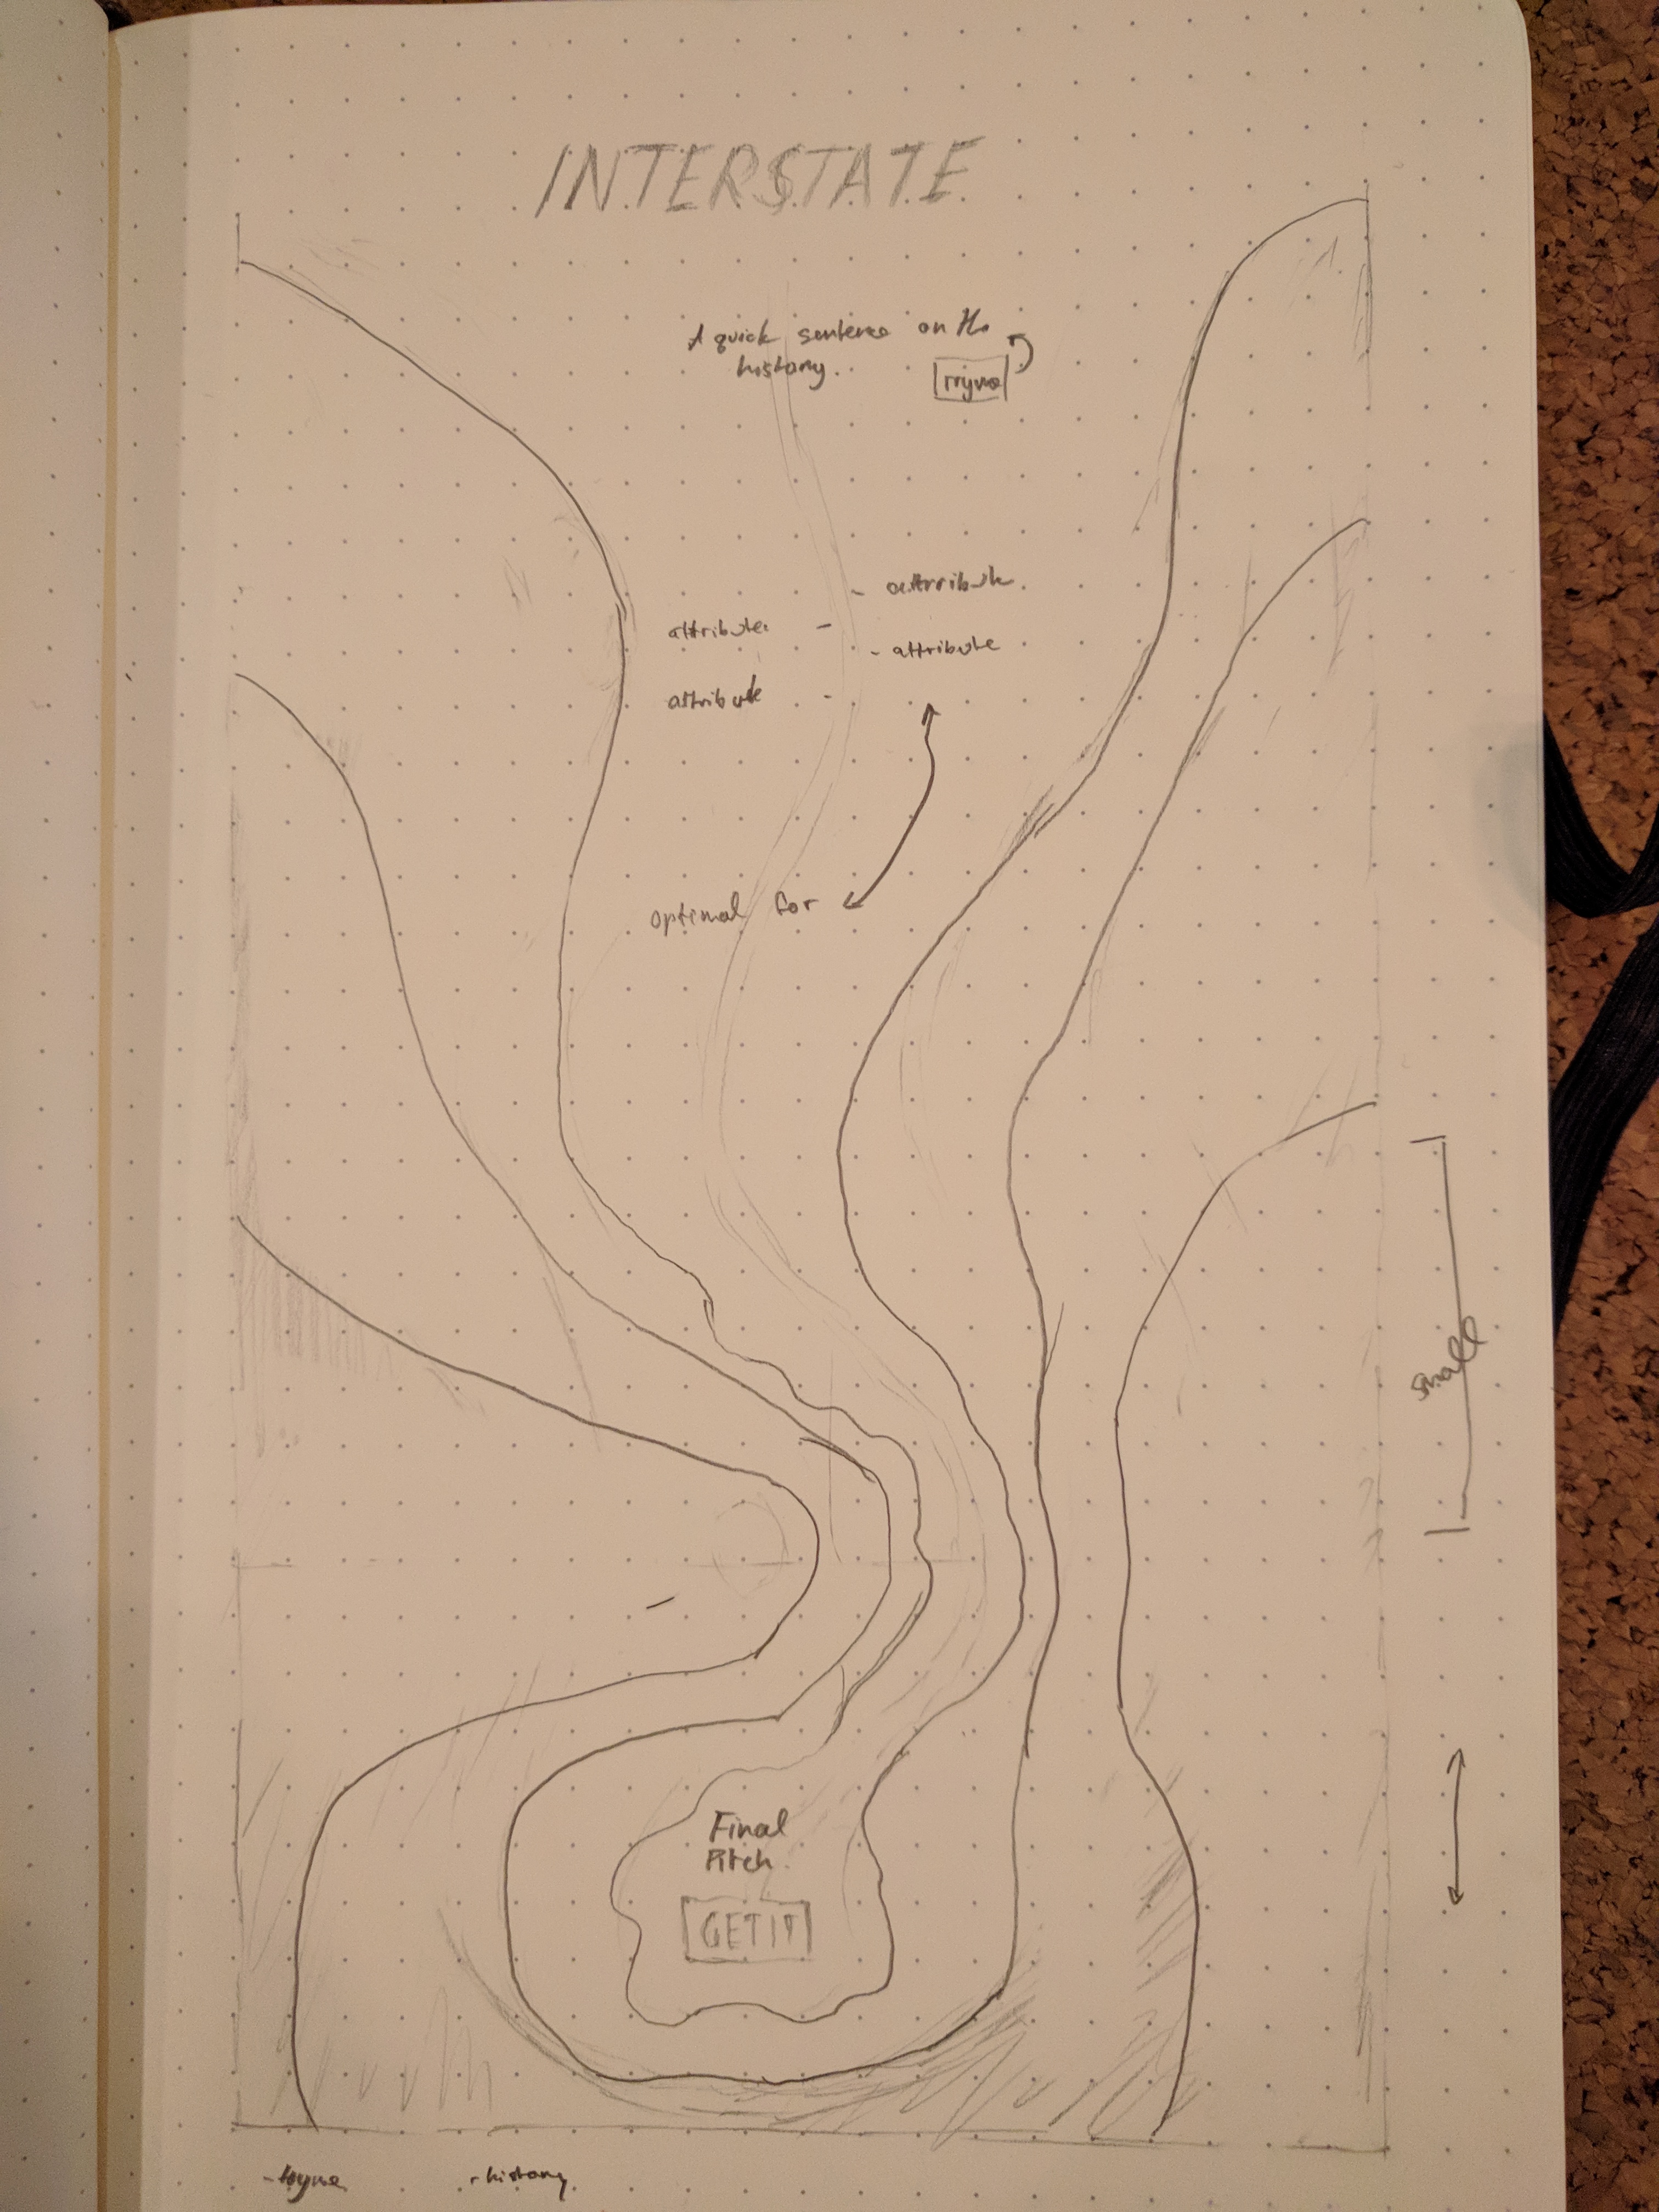 INTERSTATE
A quick sentence on the
history.
attribute.
attribute.
- attribute
attribute
optimal for
small
Final
Pitch
GET IT
- history